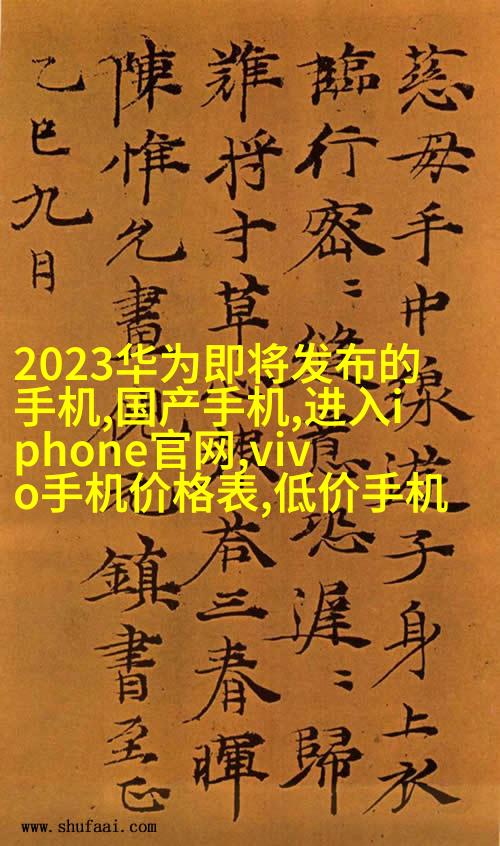 慈母手中線遊子身上衣
臨行密〻縫意恐遲〻歸
難将寸草荅三春暉
陳惟允畫鎮書至正
乙巳九月
2023华为即将发布的
手机,国产手机,进入i
phone官网,viv
o手机价格表,低价手机
www.shufaai.com